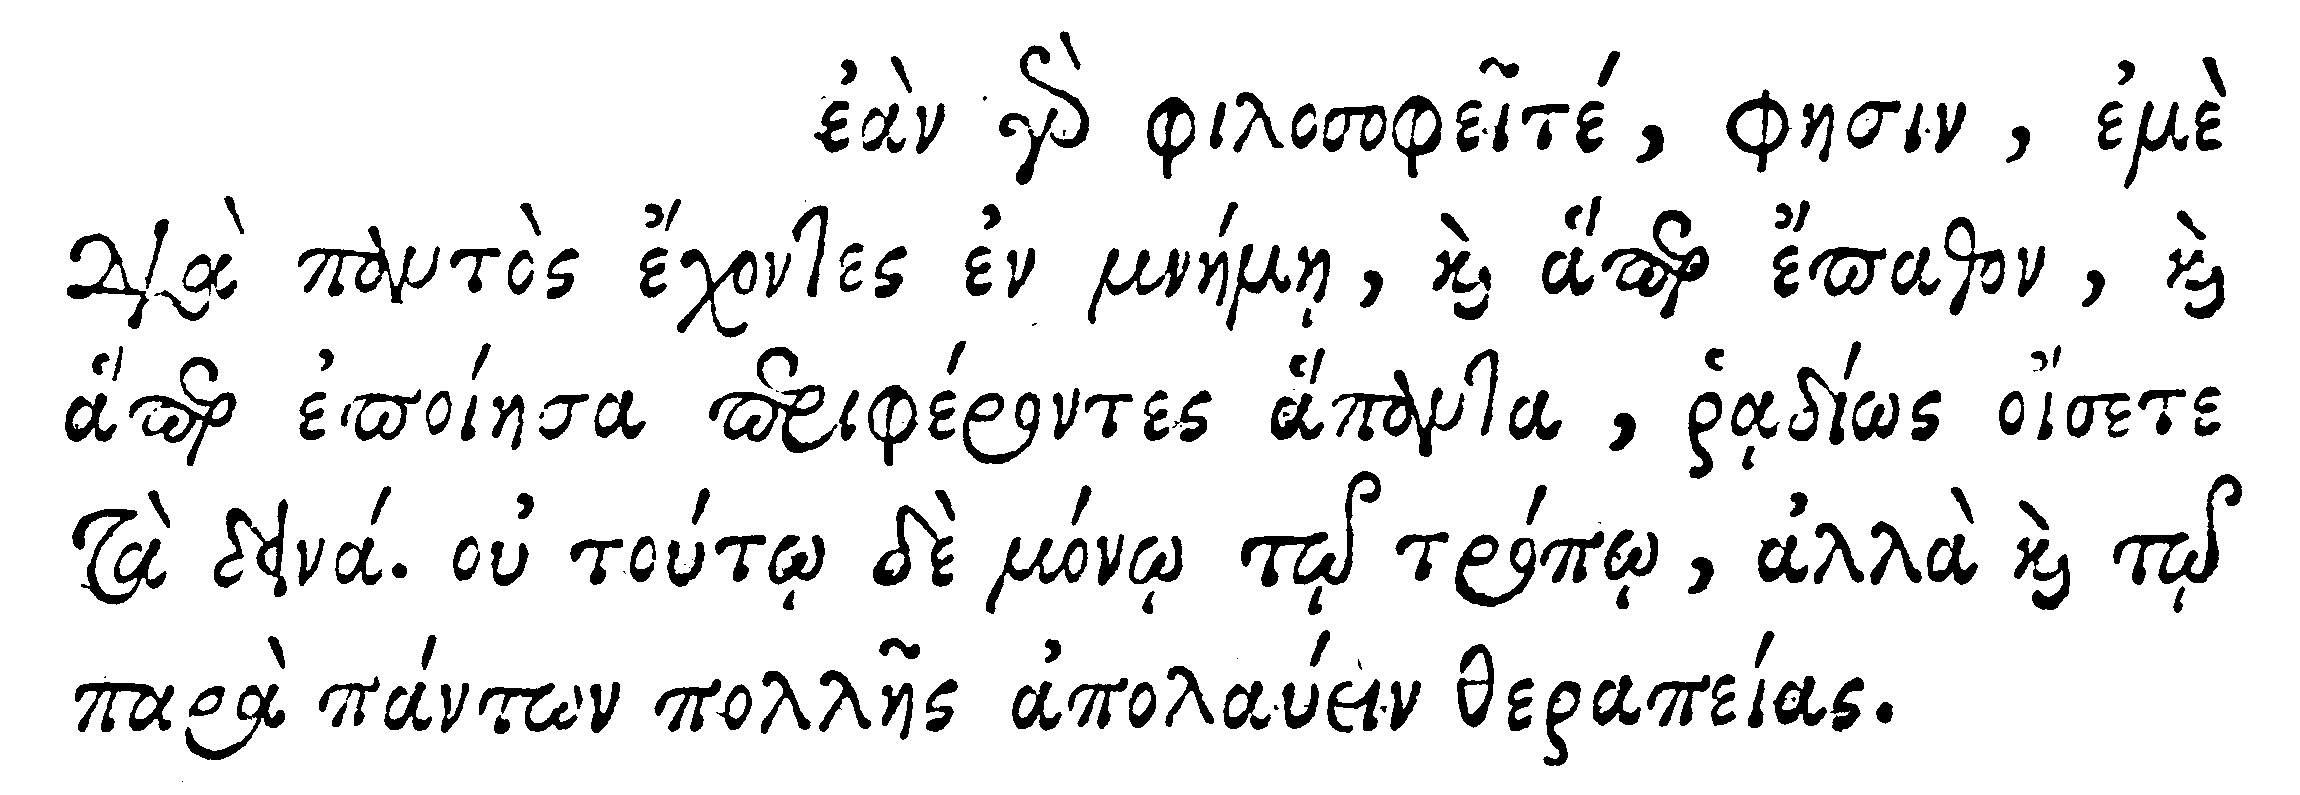 ἐὰν γὰρ φιλοσοφεῖτέ, φησιν, ἐμὲ
διὰ παντὸς ἔχοντες ἐν μνήμῃ, καὶ ἅπερ ἔπαθον, καὶ
ἅπερ ἐποίησα περιφέροντες ἅπαντα, ῥᾳδίως οἴσετε
τὰ δεινά. οὐ τούτῳ δὲ μόνῳ τῷ τρόπῳ, ἀλλὰ καὶ τῷ
παρὰ πάντων πολλῆς ἀπολαύειν θεραπείας.